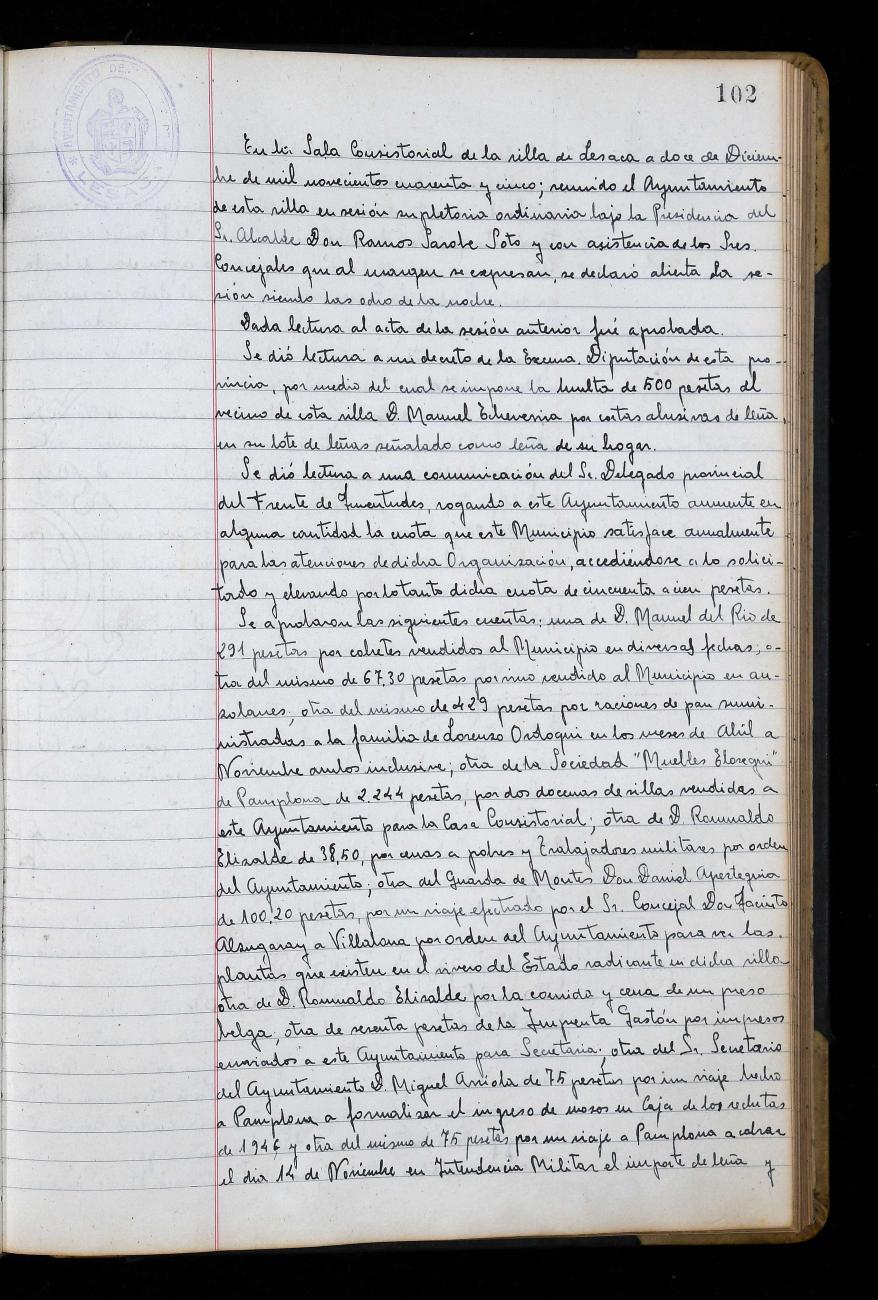 102
AYUNTAMIENTO DE
LESACA
En la Sala Consistorial de la villa de Lesaca a doce de Diciem-
bre de mil novecientos cuarenta y cinco; reunido el Ayuntamiento
de esta villa en sesión supletoria ordinaria bajo la Presidencia del
Sr. Alcalde Don Ramos Sarobe Soto y con asistencia de los Sres.
Concejales que al margen se expresan, se declaró abierta la se-
sión siendo las ocho de la noche.
Dada lectura al acta de la sesión anterior fué aprobada.
Se dió lectura a un decreto de la Excma. Diputación de esta pro-
vincia, por medio del cual se impone la multa de 500 pesetas al
vecino de esta villa D. Manuel Echeverria por cortas abusivas de leña,
en su lote de leñas señalado como leña de su hogar.
Se dió lectura a una comunicación del Sr. Delegado provincial
del Frente de Juventudes, rogando a este Ayuntamiento aumente en
alguna cantidad la cuota que este Municipio satisface anualmente
para las atenciones de dicha Organización, accediéndose a lo solici-
tado y elevando por lo tanto dicha cuota de cincuenta a cien pesetas.
Se aprobaron las siguientes cuentas: una de D. Manuel del Rio de
291 pesetas por cohetes vendidos al Municipio en diversas fechas; o-
tra del mismo de 67,30 pesetas por vino vendido al Municipio en au-
zolanes; otra del mismo de 429 pesetas por raciones de pan sumi-
nistradas a la familia de Lorenzo Ordoqui en los meses de Abril a
Noviembre ambos inclusive; otra de la Sociedad "Muebles Elosegui"
de Pamplona de 2.244 pesetas, por dos docenas de sillas vendidas a
este Ayuntamiento para la Casa Consistorial; otra de D. Romualdo
Elizalde de 38,50, por cenas a pobres y Trabajadores militares por orden
del Ayuntamiento; otra del Guarda de Montes Don Daniel Apezteguia
de 100,20 pesetas, por un viaje efectuado por el Sr. Concejal Don Jacinto
Alzugaray a Villalona por orden del Ayuntamiento para ver las
plantas que existen en el vivero del Estado radicante en dicha villa
otra de D. Romualdo Elizalde por la comida y cena de un preso
belga; otra de sesenta pesetas de la Imprenta Gastón por impresos
enviados a este Ayuntamiento para Secretaria; otra del Sr. Secretario
del Ayuntamiento D. Miguel Arriola de 75 pesetas por un viaje hecho
a Pamplona a formalizar el ingreso de mozos en Caja de los reclutas
de 1946 y otra del mismo de 75 pesetas por un viaje a Pamplona a cobrar
el dia 14 de Noviembre en Intendencia Militar el importe de leña y